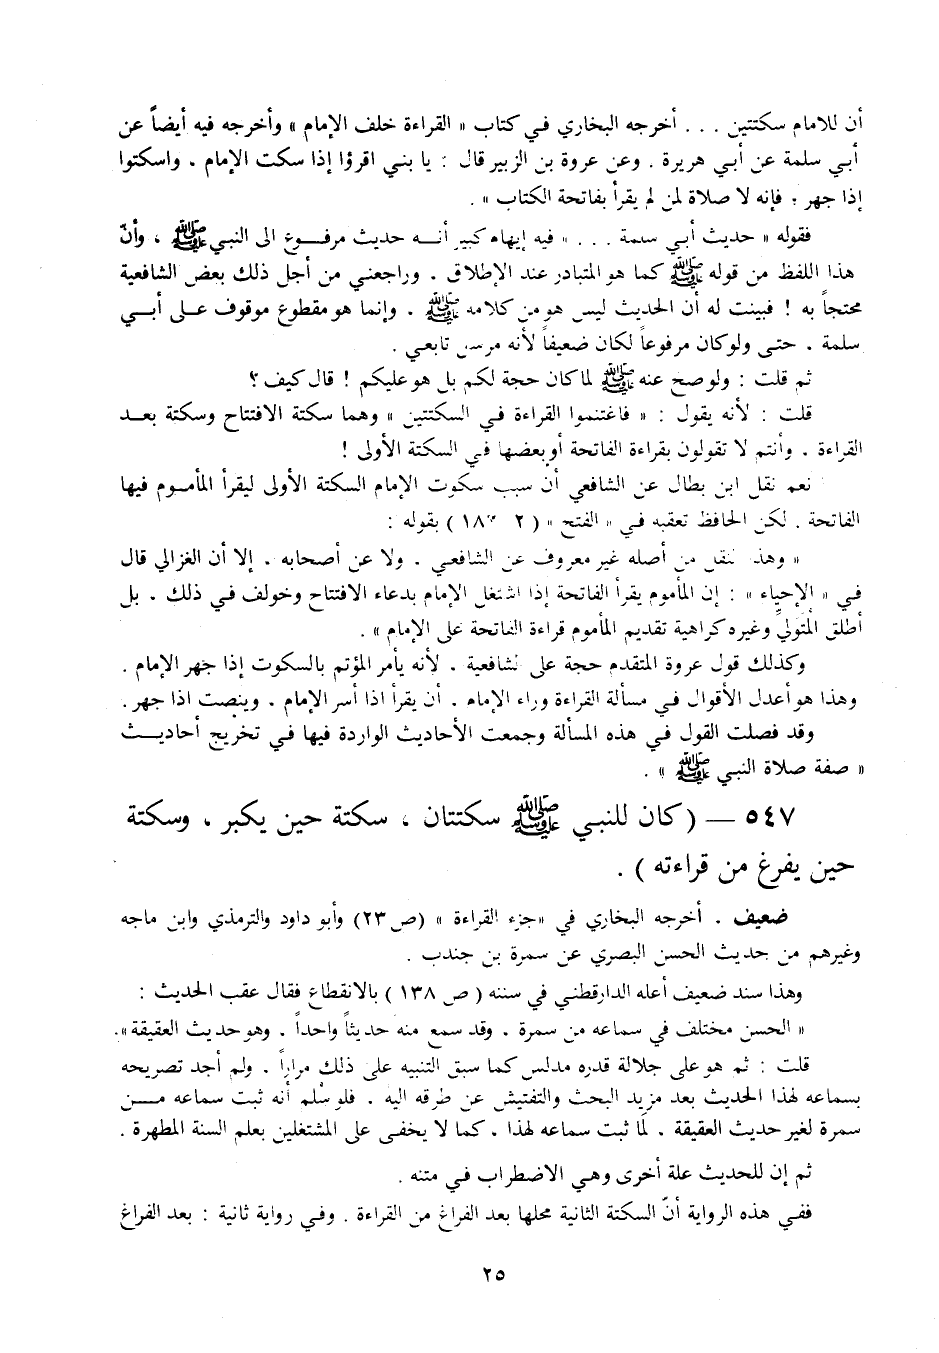 أن للامام سكتتين . . . أخرجه البخاري في كتاب « القراءة خلف الإمام » وأخرجه فيه أيضاً عن
أبي سلمة عن أبي هريرة . وعن عروة بن الزبير قال : يا بني اقرؤا إذا سكت الإمام . واسكتوا
إذا جهر ؛ فإنه لا صلاة لمن لم يقرأ بفاتحة الكتاب » .
فقوله « حديث أبي سلمة . . . » فيه إيهام كبير أنــه حديث مرفــوع الى النبي ﷺ ، وأنّ
هذا اللفظ من قوله ﷺ كما هو المتبادر عند الإطلاق . وراجعني من أجل ذلك بعض الشافعية
محتجاً به ! فبينت له أن الحديث ليس هو من كلامه ﷺ . وإنما هو مقطوع موقوف على أبي
سلمة . حتى ولو كان مرفوعاً لكان ضعيفاً لأنه مرسل تابعي .
ثم قلت : ولو صح عنه ﷺ لما كان حجة لكم بل هو عليكم ! قال كيف ؟
قلت : لأنه يقول : « فاغتنموا القراءة في السكتتين » وهما سكتة الافتتاح وسكتة بعــد
القراءة . وأنتم لا تقولون بقراءة الفاتحة أو بعضها في السكتة الأولى !
نعم نقل ابن بطال عن الشافعي أن سبب سكوت الإمام السكتة الأولى ليقرأ المأمــوم فيها
الفاتحة . لكن الحافظ تعقبه في « الفتح » ( ٢ ١٨ ) بقوله :
« وهذا النقل من أصله غير معروف عن الشافعي . ولا عن أصحابه . إلا أن الغزالي قال
في « الإحياء » : إن المأموم يقرأ الفاتحة إذا اشتغل الإمام بدعاء الافتتاح وخولف في ذلك . بل
أطلق المتوليّ وغيره كراهية تقديم المأموم قراءة الفاتحة على الإمام » .
وكذلك قول عروة المتقدم حجة على الشافعية . لأنه يأمر المؤتم بالسكوت إذا جهر الإمام .
وهذا هو أعدل الأقوال في مسألة القراءة وراء الإمام . أن يقرأ اذا أسر الإمام . وينصت اذا جهر .
وقد فصلت القول في هذه المسألة وجمعت الأحاديث الواردة فيها في تخريج أحاديــث
« صفة صلاة النبي ﷺ » .
٥٤٧ — ( كان للنبي ﷺ سكتتان ، سكتة حين يكبر ، وسكتة
حين يفرغ من قراءته ) .
ضعيف . أخرجه البخاري في «جزء القراءة » (ص ٢٣) وأبو داود والترمذي وابن ماجه
وغيرهم من حديث الحسن البصري عن سمرة بن جندب .
وهذا سند ضعيف أعله الدارقطني في سننه ( ص ١٣٨ ) بالانقطاع فقال عقب الحديث :
« الحسن مختلف في سماعه من سمرة . وقد سمع منه حديثاً واحداً . وهو حديث العقيقة ».
قلت : ثم هو على جلالة قدره مدلس كما سبق التنبيه على ذلك مراراً . ولم أجد تصريحه
بسماعه لهذا الحديث بعد مزيد البحث والتفتيش عن طرقه اليه . فلو سُلم أنه ثبت سماعه مــن
سمرة لغير حديث العقيقة . لَما ثبت سماعه لهذا ، كما لا يخفى على المشتغلين بعلم السنة المطهرة .
ثم إن للحديث علة أخرى وهي الاضطراب في متنه .
ففي هذه الرواية أنّ السكتة الثانية محلها بعد الفراغ من القراءة . وفي رواية ثانية : بعد الفراغ
٢٥